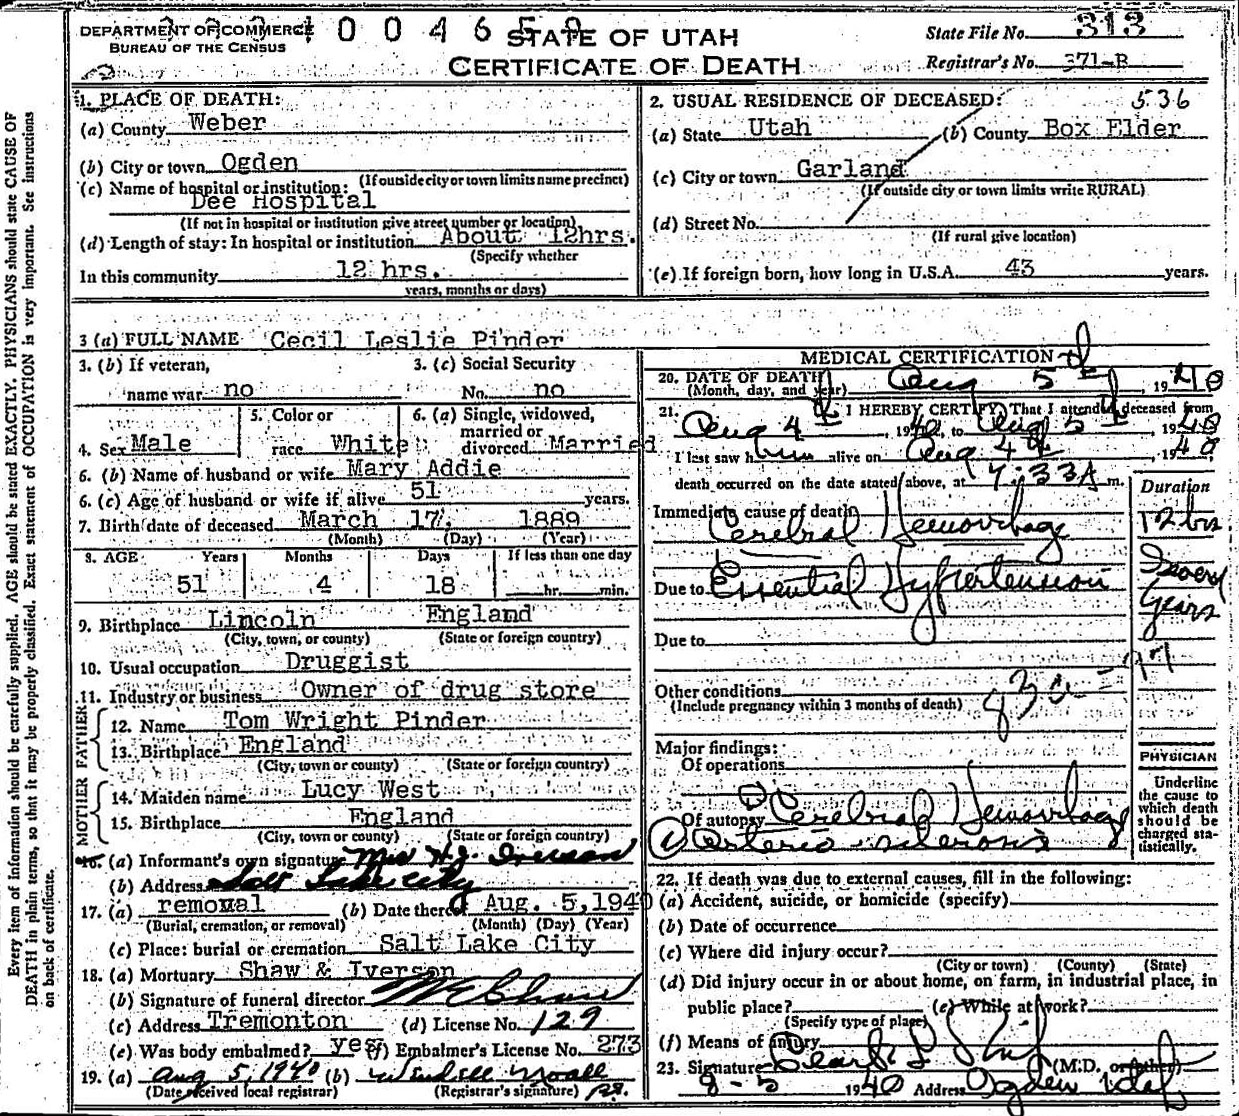 DEPARTMENT OF COMMERCE
BUREAU OF THE CENSUS
STATE OF UTAH
CERTIFICATE OF DEATH
State File No. 313
Registrar's No. 371-B
1. PLACE OF DEATH:
(a) County Weber
(b) City or town Ogden
(If outside city or town limits name precinct)
(c) Name of hospital or institution:
Dee Hospital
(If not in hospital or institution give street number or location)
(d) Length of stay: In hospital or institution About 12hrs.
(Specify whether
In this community 12 hrs.
years, months or days)
2. USUAL RESIDENCE OF DECEASED: 536
(a) State Utah (b) County Box Elder
(c) City or town Garland
(If outside city or town limits write RURAL)
(d) Street No.
(If rural give location)
(e) If foreign born, how long in U.S.A. 43 years.
3 (a) FULL NAME Cecil Leslie Pinder
3. (b) If veteran,
name war no
3. (c) Social Security
No. no
4. Sex Male
5. Color or
race White
6. (a) Single, widowed,
married or
divorced Married
6. (b) Name of husband or wife Mary Addie
6. (c) Age of husband or wife if alive 51 years.
7. Birth date of deceased March 17, 1889
(Month) (Day) (Year)
8. AGE Years Months Days If less than one day
51 4 18 hr. min.
9. Birthplace Lincoln England
(City, town, or county) (State or foreign country)
10. Usual occupation Druggist
11. Industry or business Owner of drug store
FATHER
12. Name Tom Wright Pinder
13. Birthplace England
(City, town or county) (State or foreign country)
MOTHER
14. Maiden name Lucy West
15. Birthplace England
(City, town or county) (State or foreign country)
16. (a) Informant's own signature Mrs H.J. Iverson
(b) Address Salt Lake City
17. (a) removal (b) Date thereof Aug. 5, 1940
(Burial, cremation, or removal) (Month) (Day) (Year)
(c) Place: burial or cremation Salt Lake City
18. (a) Mortuary Shaw & Iverson
(b) Signature of funeral director
(c) Address Tremonton (d) License No. 129
(e) Was body embalmed? yes (f) Embalmer's License No. 273
19. (a) Aug 5, 1940 (b)
(Date received local registrar) (Registrar's signature)
MEDICAL CERTIFICATION
20. DATE OF DEATH Aug 5th, 1940
(Month, day, and year)
21. I HEREBY CERTIFY, That I attended deceased from
Aug 4th, 1940, to Aug 5th, 1940
I last saw him alive on Aug 4th, 1940
death occurred on the date stated above, at 4:33A m.
Duration
Immediate cause of death
Cerebral Hemorrhage 12 hrs.
Due to Essential Hypertension Several Years
Due to
Other conditions
(Include pregnancy within 3 months of death)
Major findings:
Of operations
Of autopsy Cerebral Hemorrhage
Arterio sclerosis
PHYSICIAN
Underline
the cause to
which death
should be
charged sta-
tistically.
22. If death was due to external causes, fill in the following:
(a) Accident, suicide, or homicide (specify)
(b) Date of occurrence
(c) Where did injury occur?
(City or town) (County) (State)
(d) Did injury occur in or about home, on farm, in industrial place, in
public place? (e) While at work?
(Specify type of place)
(f) Means of injury
23. Signature (M.D. or other)
8-5 1940 Address Ogden Utah
Every item of information should be carefully supplied. AGE should be stated EXACTLY. PHYSICIANS should state CAUSE OF
DEATH in plain terms, so that it may be properly classified. Exact statement of OCCUPATION is very important. See instructions
on back of certificate.